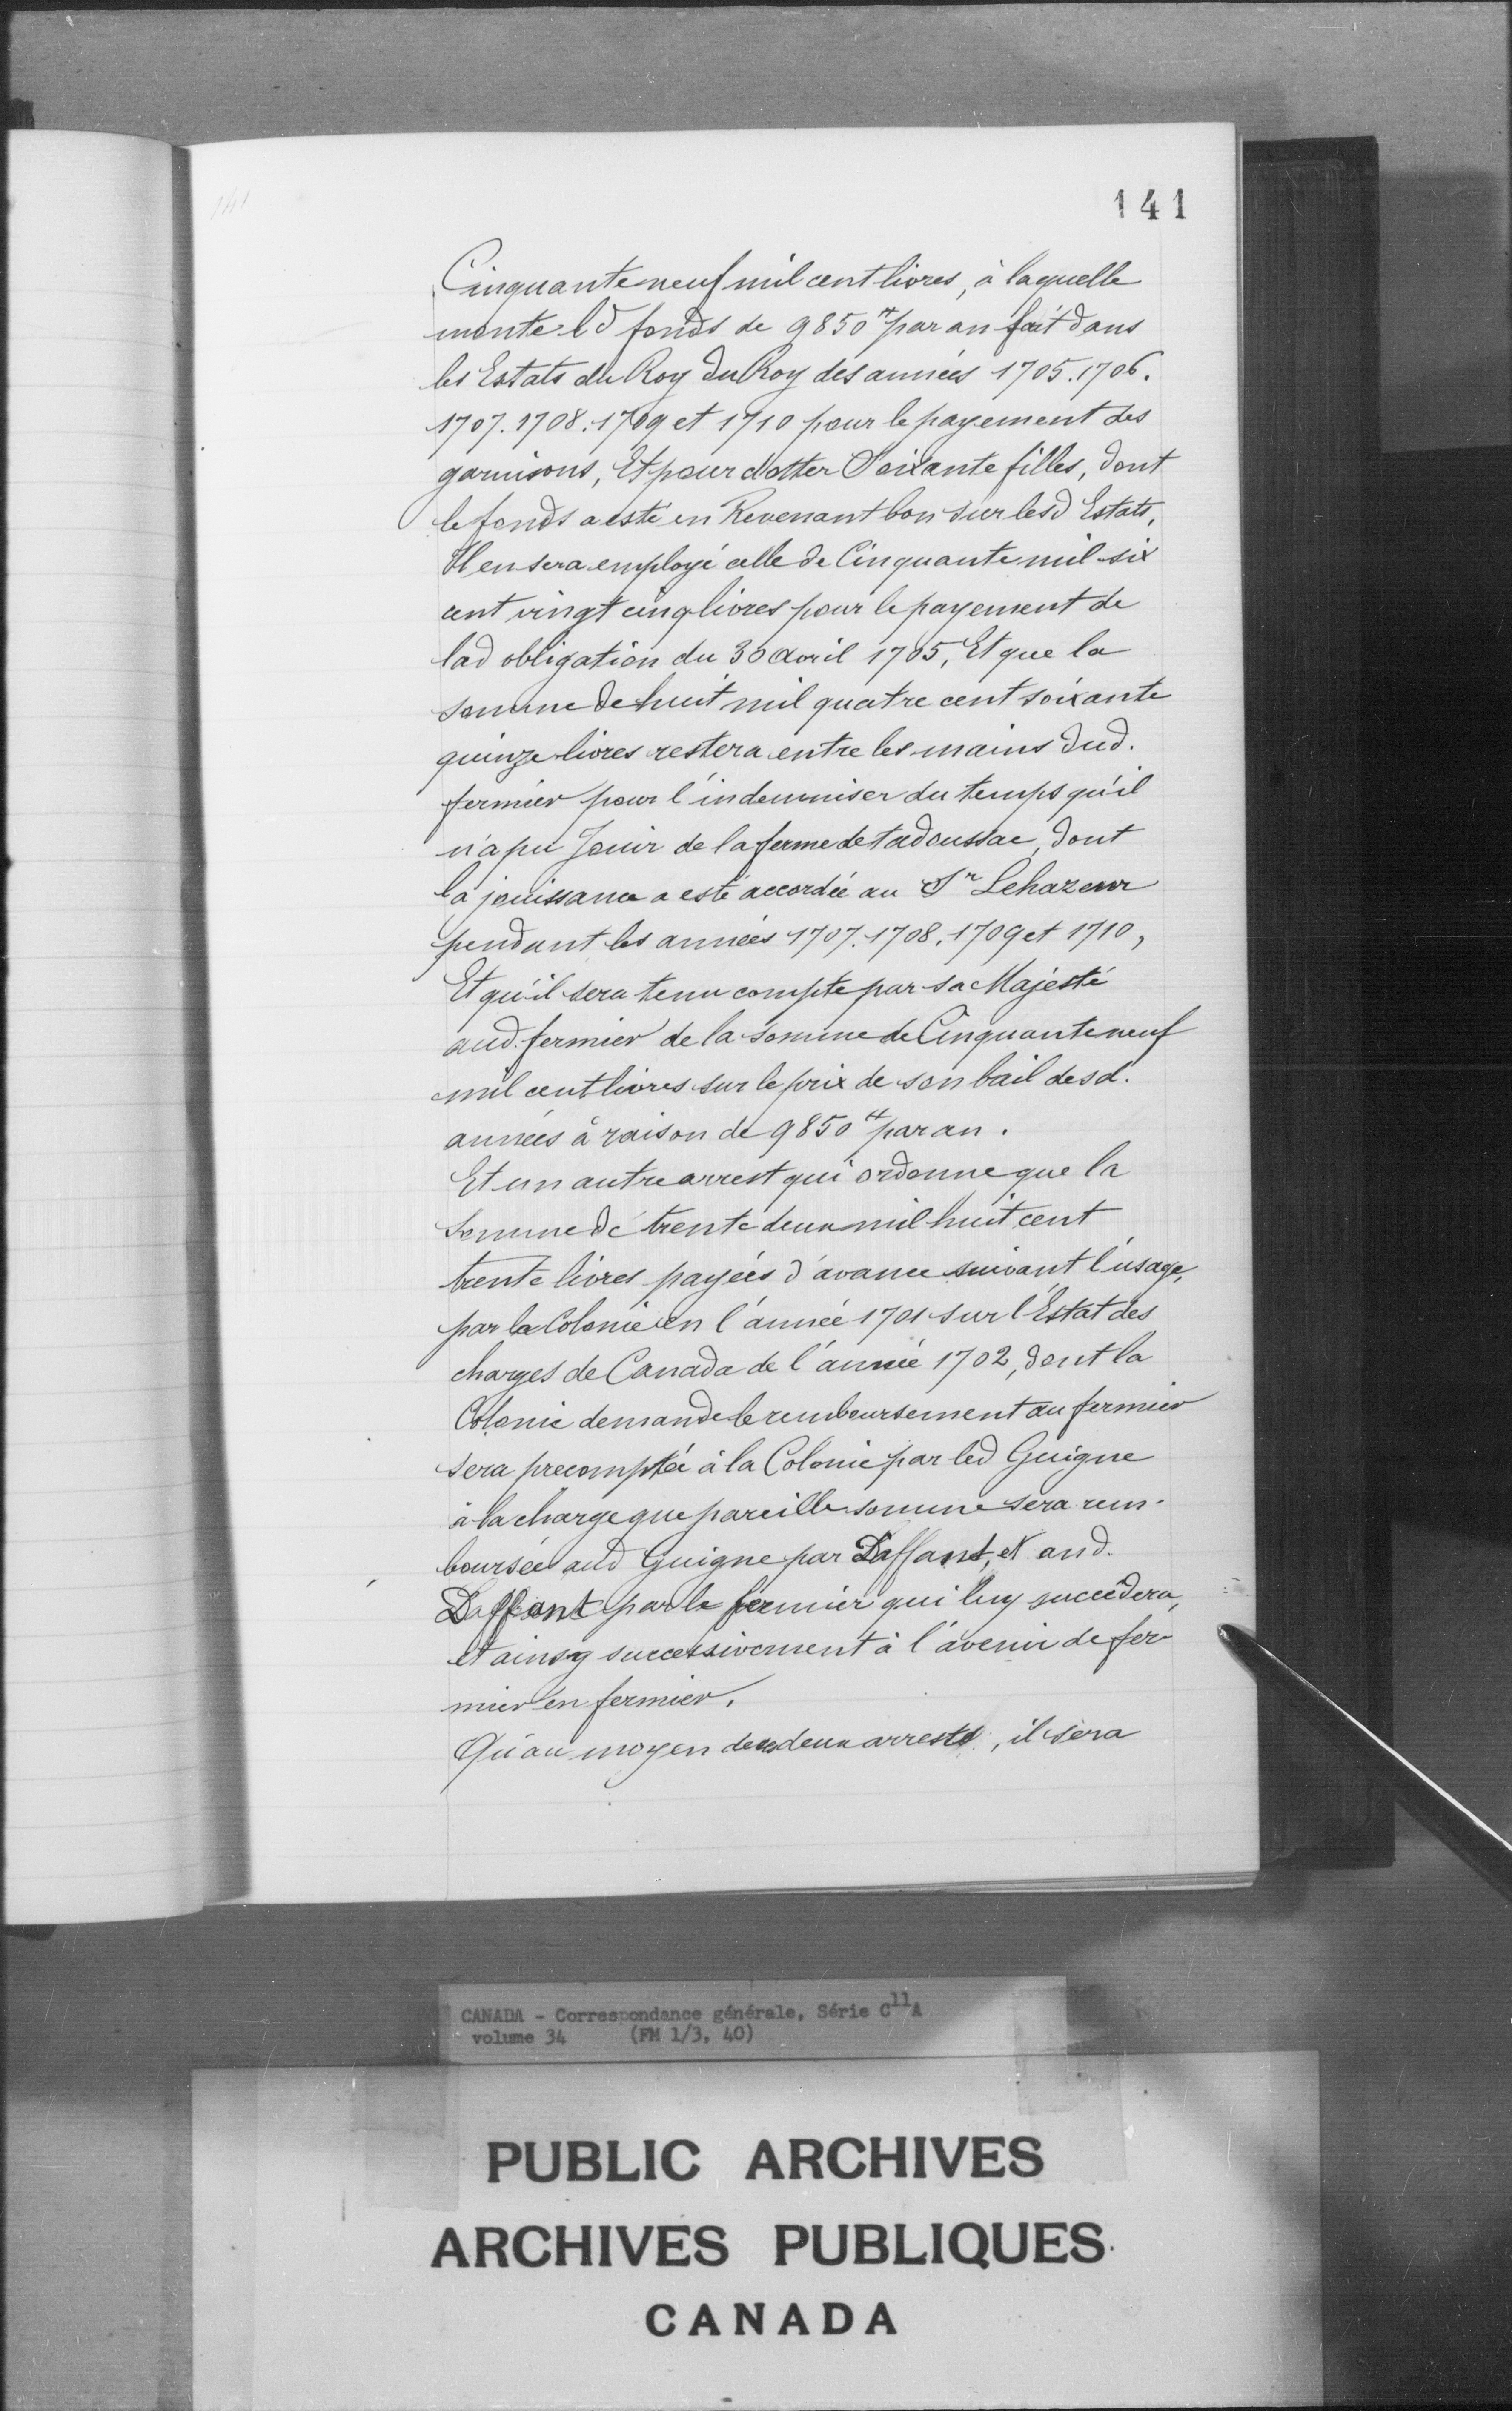 141
141
Cinquante neuf mil cent livres, à laquelle
monte led fonds de 9850ᵗᵗ par an fait dans
les Estats du Roy du Roy des années 1705. 1706.
1707. 1708. 1709 et 1710 pour le payement des
garnisons, Et pour dotter Soixante filles, dont
le fonds a esté en Revenant bon sur lesd Estats,
Il en sera employé celle de Cinquante mil six
cent vingt cinq livres pour le payement de
lad obligation du 30 avril 1705, Et que la
somme de huit mil quatre cent soixante
quinze livres restera entre les mains dud.
fermier pour l'indemniser du temps qu'il
n'a pu Jouir de la ferme de tadoussac, dont
la jouissance a esté accordée au Sr Lehazeur
pendant les années 1707. 1708. 1709 et 1710,
Et qu'il sera tenu compte par sa Majesté
aud. fermier de la somme de Cinquante neuf
mil cent livres sur le prix de son bail desd.
années à raison de 9850ᵗᵗ par an.
Et un autre arrest qui ordonne que la
Somme de trente deux mil huit cent
trente livres payées d'avance suivant l'usage,
par la Colonie en l'année 1701 sur l'Estat des
charges de Canada de l'année 1702, dont la
Colonie demande le remboursement au fermier
sera precomptée à la Colonie par led Guigne
à la charge que pareille somme sera rem-
boursée aud Guigne par Daffant, et aud.
Daffant par le fermier qui luy succedera,
et ainsy successivement à l'avenir de fer
mier en fermier.
Qu'au moyen de ces deux arrests, il sera
CANADA - Correspondance générale, Série C11A
volume 34 (FM 1/3, 40)
PUBLIC ARCHIVES
ARCHIVES PUBLIQUES
CANADA